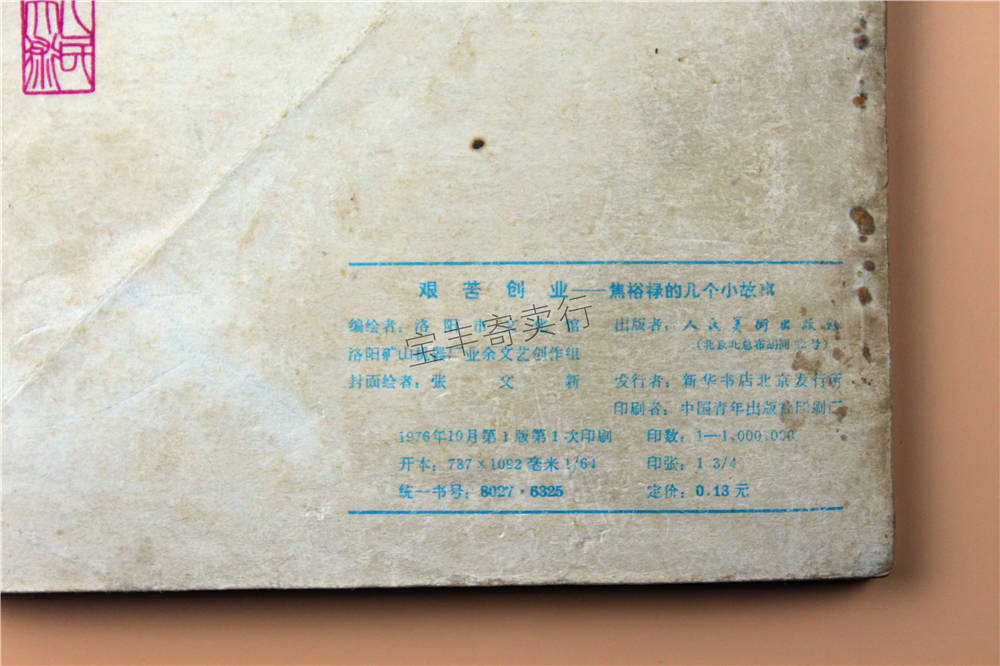 艰苦创业——焦裕禄的几个小故事
编绘者：洛阳市文化馆
洛阳矿山机器厂业余文艺创作组
封面绘者：张文新
出版者：人民美术出版社
（北京北总布胡同32号）
发行者：新华书店北京发行所
印刷者：中国青年出版社印刷厂
1976年10月第1版第1次印刷
印数：1—1,000,000
开本：787×1092毫米1/64
印张：1 3/4
统一书号：8027·6325
定价：0.13元
宝丰寄卖行